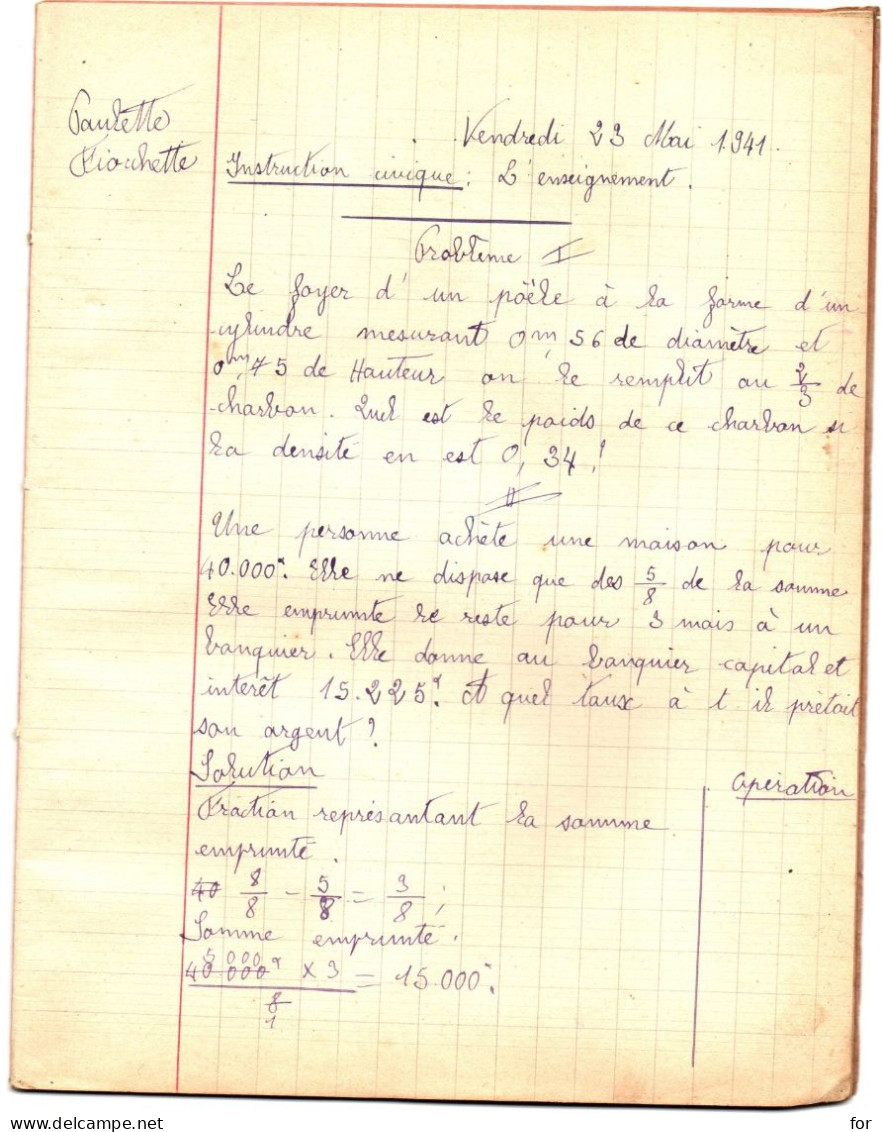 Paulette
Vendredi 23 Mai 1941.
Instruction civique : L'enseignement.
Problème I
Le foyer d'un pöële à la forme d'un
cylindre mesurant 0m,56 de diamètre et
0m,75 de Hauteur on le remplit au 2/3 de
charbon. Quel est le poids de ce charbon si
la densité en est 0,34 !
II
Une personne achète une maison pour
40.000f. Elle ne dispose que des 5/8 de la somme
Elle emprunte le reste pour 3 mois à un
banquier. Elle donne au banquier capital et
interêt 15.225f. A quel taux à t il prêtait
son argent ?
Solution
opération
Fraction représantant la somme
emprunté.
40 8/8 - 5/8 = 3/8 ;
Somme emprunté.
5 000
40 000f x 3 = 15.000f.
8
1
for